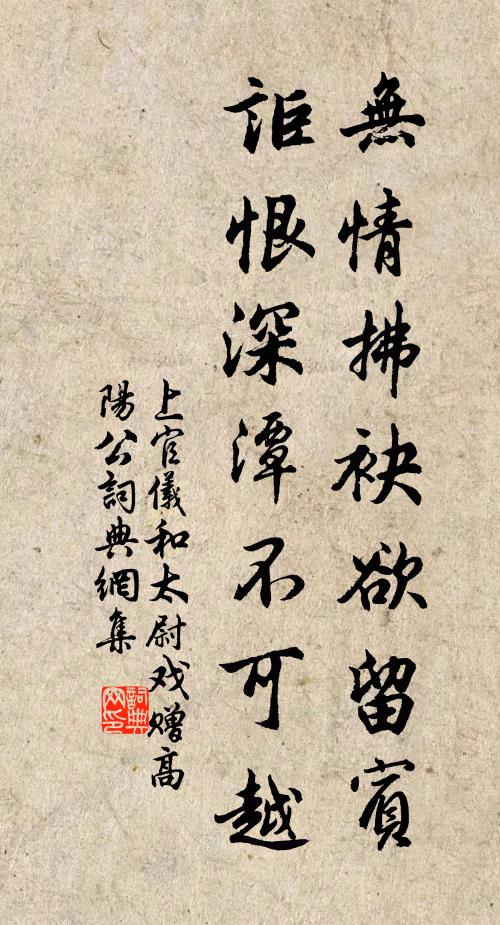 無情拂袂欲留賓
詎恨深潭不可越
上官儀和太尉戏赠高
陽公詞典網集
詞典网印